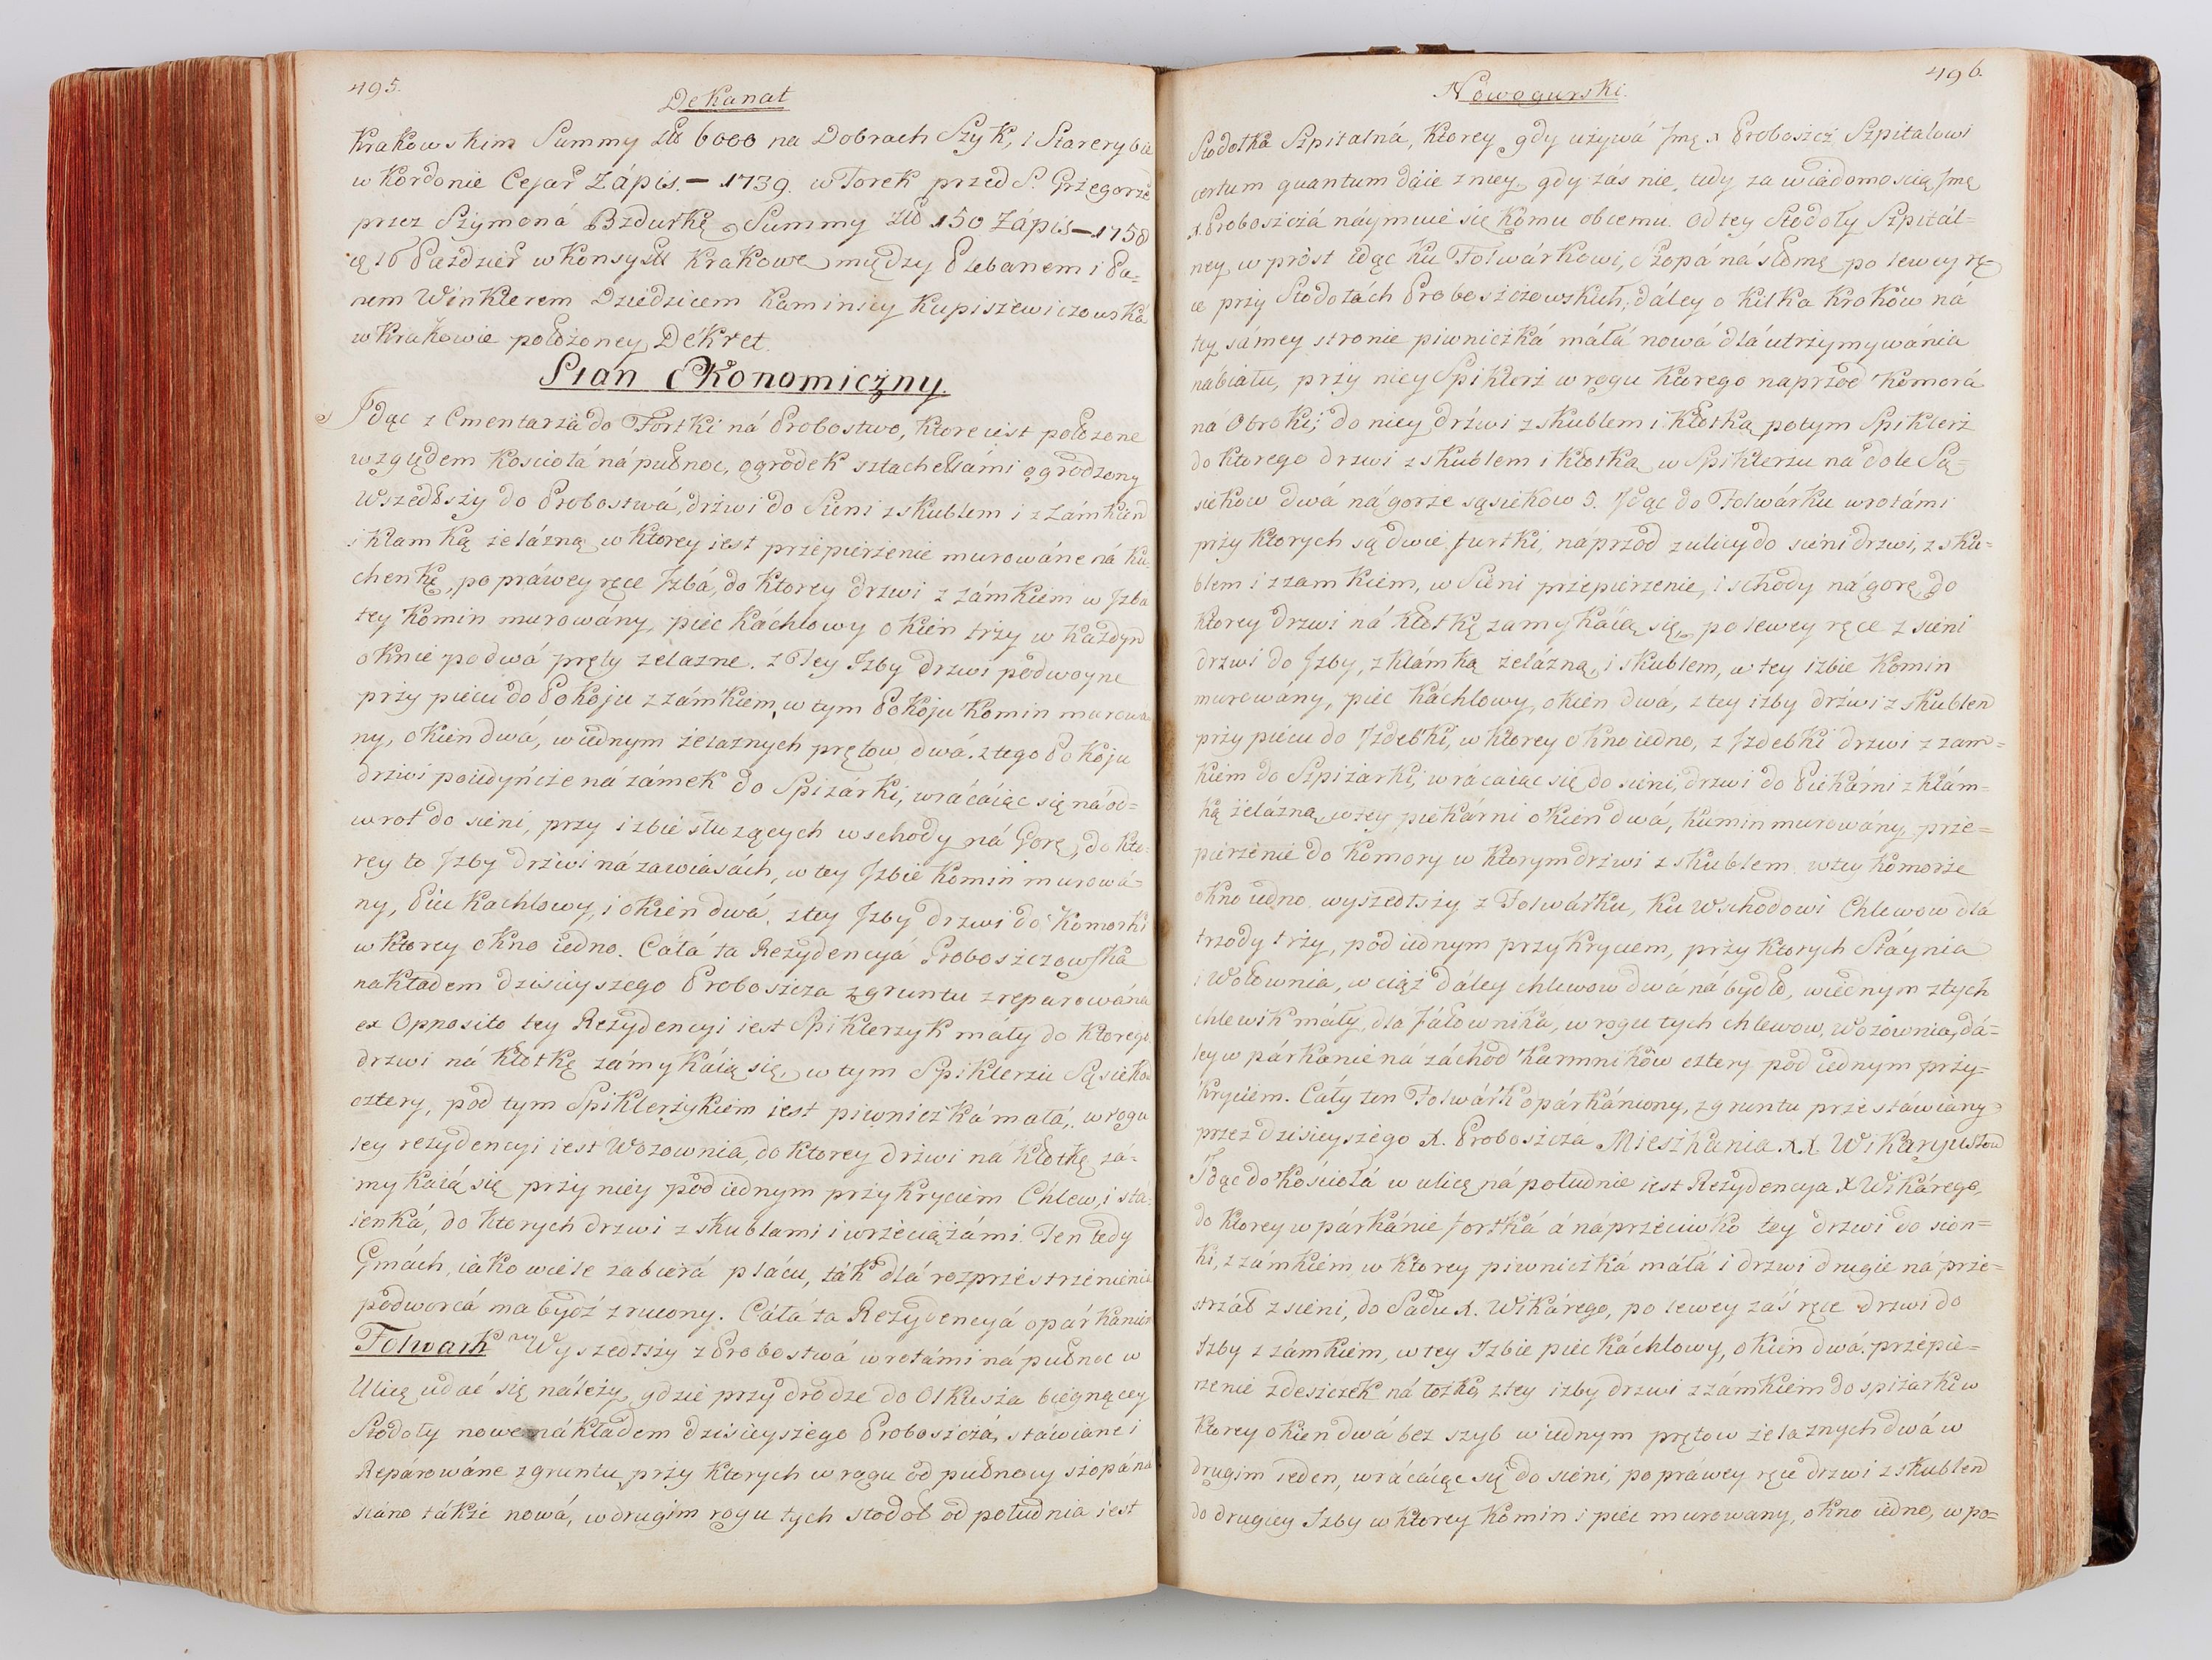 495.
Dekanat
Krakowskim Summy Zł 6000 na Dobrach Szyk, i Stareryba
w Kordonie Cesar Zápis. – 1739. w Torek przed S. Grzegorzē
przez Szymoná Bzdurkę Summy Złł 150 Zápis – 1758
16 Pazdzier w Konsyst Krakowe między Plebanem i Pa-
nem Winklerem Dziedzicem Kaminicy Kupiszewiczowská
w Krakowie położoney Dekret.
Stan Ekonomiczny.
Idąc z Cmentarza do Fortki ná Probostwo, ktore iest położone
wzgędem Kosciołá ná pułnoc, ogrodek sztachetámi ogrodzony
Wszedłszy do Probostwá, drzwi do Sieni z skublem i z Zamkiem
i klamką żelázną w ktorey iest przepierzenie murowáne ná ku
chenkę, po práwey ręce Izbá, do ktorey drzwi z zámkiem w Izba
tey Komin murowány, piec káchlowy okien trzy w każdyn
oknie po dwá pręty zelazne. z Tey Izby drzwi podwoyne
przy piecu do Pokoju z zámkiem, w tym Pokoju Komin murowa
ny, okien dwá, w iednym żelaznych prętow dwá. z tego Pokoju
drzwi poiedyńcze na zámek do Spiżárki, wrácáiąc się ná od=
wrot do sieni, przy izbie służących wschody ná Gorę, do kto=
rey to Izby drzwi ná zawiasách, w tey Izbie Komin murowá=
ny, Piec Kachlowy, i okien dwá. z tey Izby drzwi do Komorki
w ktorey okno iedno. Cáłá ta Rezydencyá Proboszczowska
nakładem dzisieyszego Proboszcza z gruntu zreparowána
ex Opposito tey Rezydencyi iest Spiklerzyk máły do ktorego
drzwi ná kłotkę zámykáią się, w tym Spiklerzu Sąsiekow
cztery, pod tym Spiklerzykiem iest piwniczká matá, w rogu
tey rezydencyi iest Wozownia, do ktorey drzwi ná kłotkę zá-
mykáią się przy niey pod iednym przykryciem Chlew, i stá-
ienká, do ktorych drzwi z skublami i wrzeciążámi. Ten tedy
Gmách, iáko wiele zabierá plácu, ták dlá rozprzestrzenienia
podworcá ma bydź zrucony. Cáłá ta Rezydencyá opárkanion
Folwark Wyszedłszy z Probostwá wrotámi ná pułnoc w
Ulicę udać się náleży, gdzie przy drodze do Olkusza biegnącey
Stodoły nowe nákładem dzisieyszego Proboszczá, stáwiane i
Repárowáne z gruntu przy ktorych w rogu od pułnocy szopá na
siano tákże nowá, w drugim rogu tych stodoł od południa iest
Nowogurski.
496.
Stodołka Szpitalná, ktorey gdy używá Jmę X Proboszcz Szpitalowi
certum quantum dáie z niey, gdy zás nie, tedy za wiadomoscią Jmę
X. Proboszczá náymuie się komu obcemu. Od tey Stodoły Szpitál-
ney w prost idąc ku Folwárkowi, Szopá ná słomę po lewey rę-
ce przy Stodołách Proboszczowskich, dáley o kilka krokow ná
tey sámey stronie piwniczká máłá nowá dlá utrzymywánia
nabiału, przy niey Spiklerz w rogu ktorego naprzod Komorá
ná Obroki; do niey drzwi z skublem i kłotką, potym Spiklerz
do ktorego drzwi z skublem i kłotką, w Spiklerzu na dole Są-
siekow dwá ná gorze sąsiekow 5. Idąc do Folwárku wrotámi
przy ktorych są dwie furtki, náprzod z ulicy do sieni drzwi, z sku=
blem i z zamkiem, w Sieni przepierzenie, i schody ná gorę, do
ktorey drzwi ná kłotkę zamykáią się, po lewey ręce z sieni
drzwi do Izby, z klámką żelázną, i skublem, w tey izbie Komin
murowany, piec káchlowy, okien dwá, z tey izby drzwi z skublem
przy piecu do Izdebki, w ktorey okno iedno, z Izdebki drzwi z zam=
kiem do Szpiżarki, wrácaiąc się do sieni, drzwi do Piekárni z klám=
ką żelázną, w tey piekárni okien dwá, kumin murowány, prze=
pierzenie do Komory w ktorym drzwi z skublem. w tey komorze
okno iedno. wyszedtszy z Folwárku, ku Wschodowi Chlewow dlá
trzody trzy, pod iednym przykryciem, przy ktorych Stáynia
i Wołownia, w ciąż dáley chlewow dwá ná bydło, w iednym z tych
chlewik máły, dla Jáłownika, w rogu tych chlewow, Wozownia, dá=
ley w párkanie ná záchod Karmnikow cztery pod iednym przy=
kryciem. Cáły ten Folwárk opárkániony, z gruntu przestáwiany
przez dzisieyszego X. Proboszczá Mieszkania XX Wikaryuszow
Idąc do Kościołá w ulicę ná południe iest Rezydencya X Wikárego,
do ktorey w párkánie fortká á naprzeciwko tey drzwi do sion=
ki, z zámkiem, w ktorey piwniczká máłá i drzwi drugie ná prze=
strzał z sieni, do Sádu X. Wikárego, po lewey záś ręce drzwi do
Izby z zámkiem, w tey Izbie piec káchlowy, okien dwá. przepie=
rzenie z desiczek ná łożko, z tey izby drzwi z zámkiem do spiżarki w
ktorey okien dwá bez szyb w iednym prętow żelaznych dwá w
drugim ieden, wrácáiąc się do sieni, po práwey ręce drzwi z skublem
do drugiey Izby w ktorey Komin i piec murowany, okno iedno, w po=